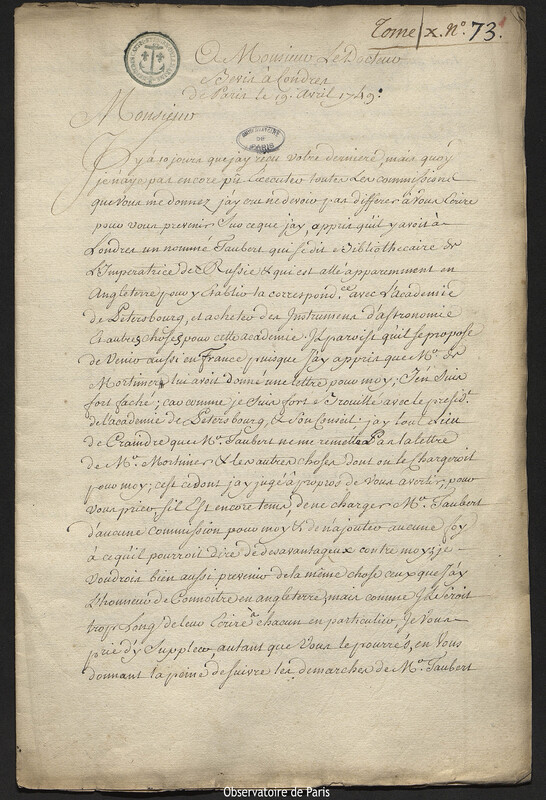 Tome x. N.° 73.
A Monsieur Le Docteur
Bevis à Londres
de Paris le 19. Avril 1749.
Monsieur
OBSERVATOIRE DE PARIS
Il y a 10 jours que j'ay reçu votre derniere; mais quoy
je n'aye pas encore pû Executer toutes Les commissions
que vous me donnez j'ay cru ne devoir pas differer à vous Ecrire
pour vous prevenir Sur ce que j'ay, appris qu'il y avoit à
Londres un nommé Taubert qui se dit Bibliothecaire de
L'Imperatrice de Russie & qui est allé apparemment en
Angleterre pour y Etablir la correspond.ce avec L'academie
de Petersbourg, et acheter des Instrumens d'astronomie
et autres choses pour cette academie. Il paroist qu'il se propose
de Venir aussi en France puisque J'ay appris que M.r de
Mortimer lui avoit donné une lettre pour moy; J'en Suis
fort faché; car comme je Suis fort Brouillé avec le presid.t
de l'academie de Petersbourg, & Son Conseil; jay tout Lieu
de Craindre que M.r Taubert ne me remette Pas la lettre
de M.r Mortimer & les autres choses dont on le chargeroit
pour moy; c'est ce dont jay jugé à propos de Vous avertir, pour
Vous prier, s'il Est encore tems, de ne charger M.r Taubert
d'aucune commission pour moy & de n'ajouter aucune foy
à ce qu'il pourroit dire de desavantageux contre moy; je
Voudrois bien aussi prevenir de la même chose ceux que J'ay
L'honneur de Connoitre en angleterre; mais comme Il Seroit
trop Long de leur Ecrire à chacun en particulier, Je Vous
prie d'y Suppleer, autant que Vous le pourrés, en Vous
donnant la peine de suivre les demarches de M.r Taubert
Observatoire de Paris